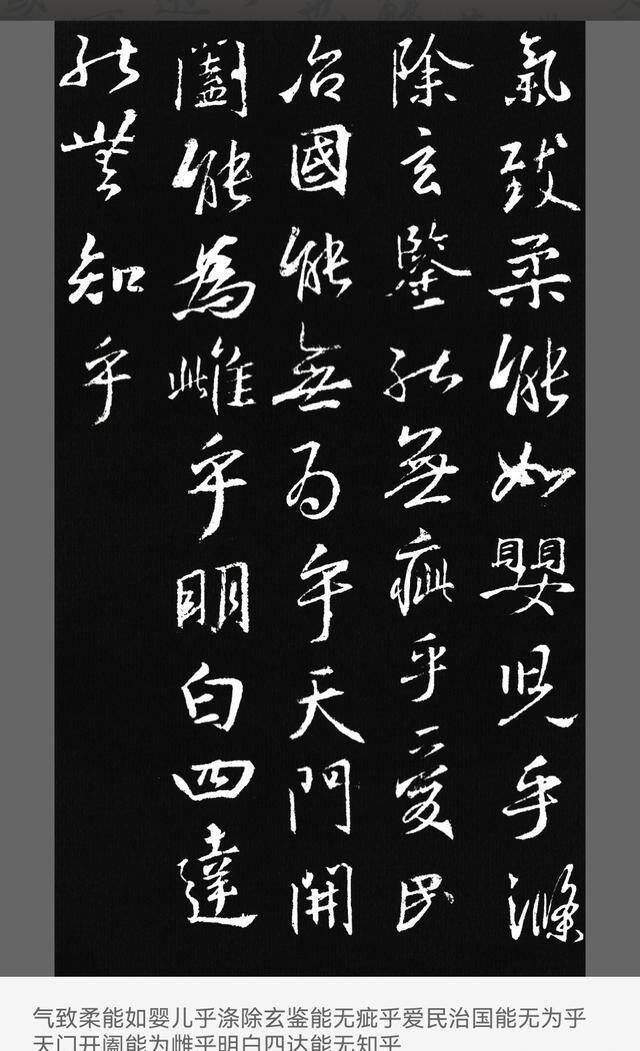 氣致柔能如嬰兒乎滌
除玄鑒能無疵乎愛民
治國能無為乎天門開
闔能為雌乎明白四達
能無知乎
气致柔能如婴儿乎涤除玄鉴能无疵乎爱民治国能无为乎
天门开阖能为雌乎明白四达能无知乎